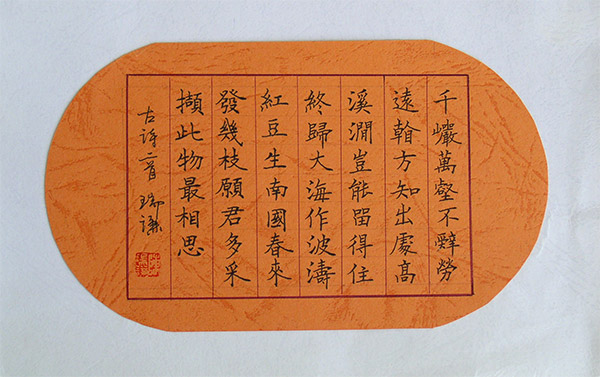 千巖萬壑不辭勞
遠看方知出處高
溪澗豈能留得住
終歸大海作波濤
紅豆生南國春來
發幾枝願君多采
擷此物最相思
古詩二首 瑞謙